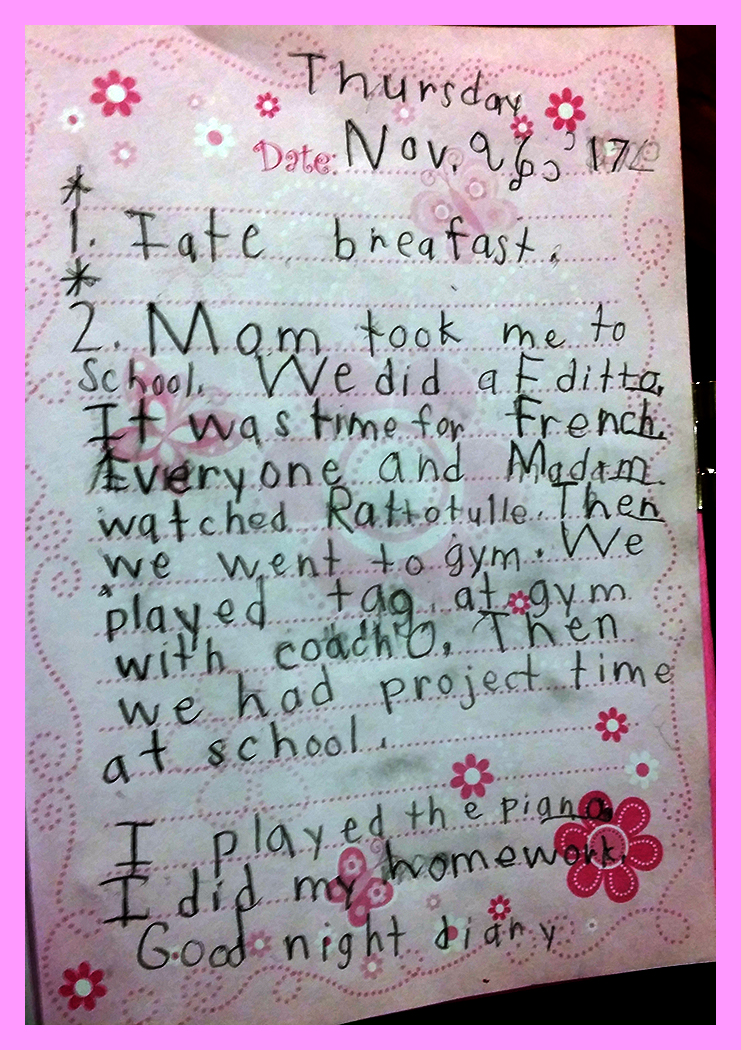 Thursday
Date: Nov. 26, '17
*
1. I ate breafast.
*
2. Mom took me to
School. We did a E ditto.
It was time for French.
Everyone and Madam
watched Rattotulle. Then
we went to gym. We
played tag at gym
with coach O. Then
we had project time
at school.
I played the piano.
I did my homework.
Good night diary